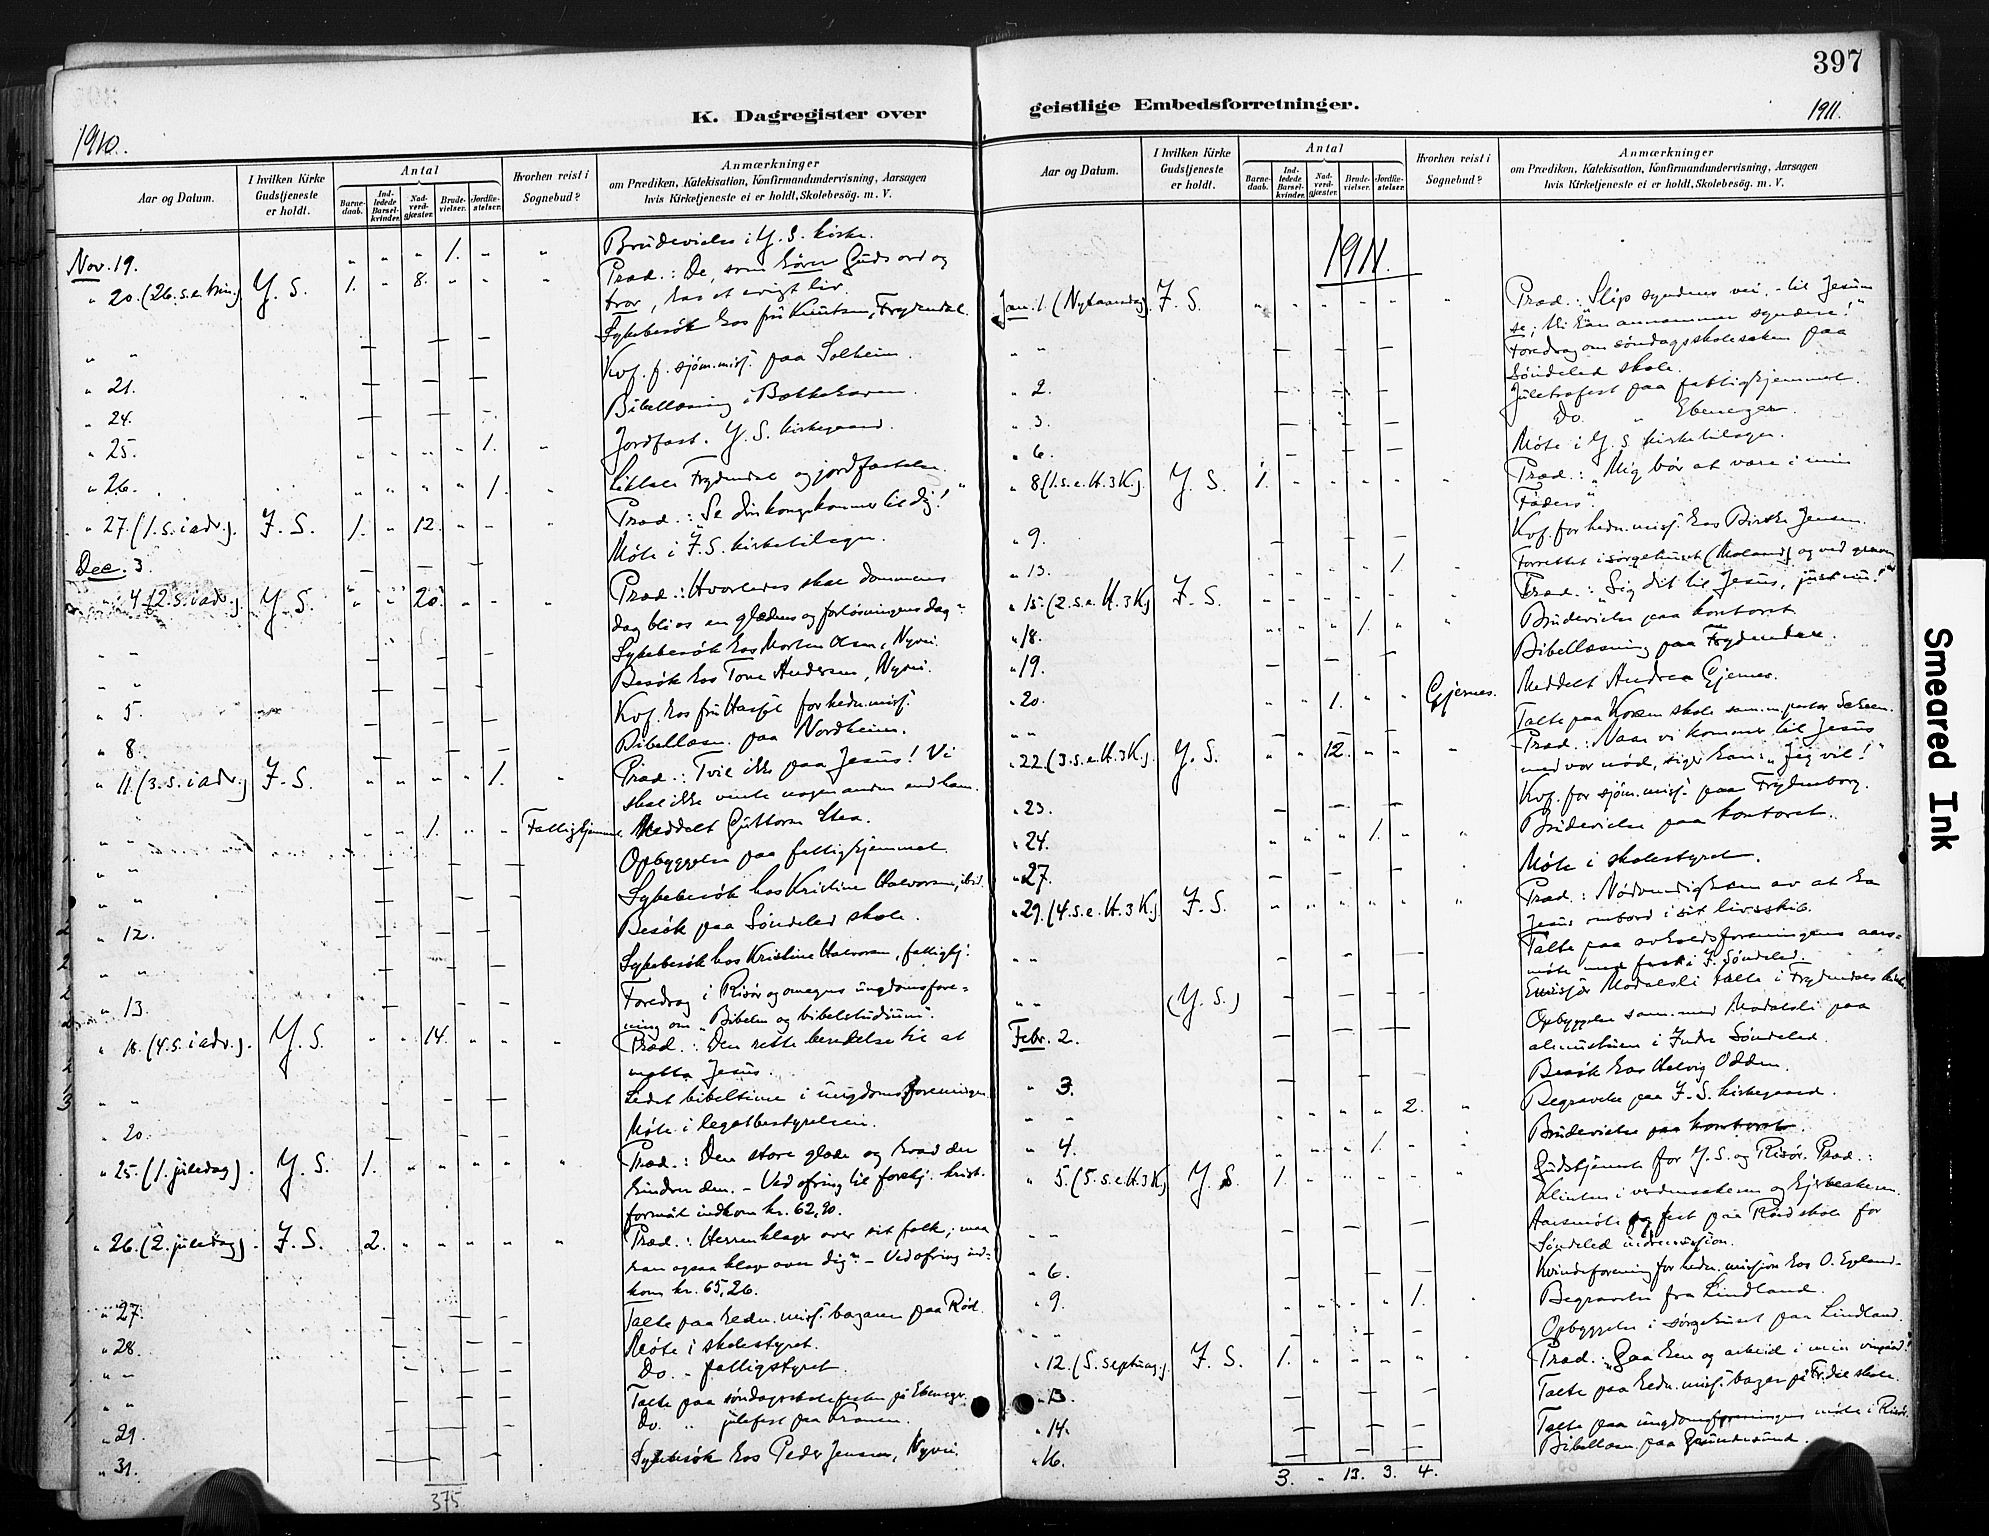 397
K. Dagregister over geistlige Embedsforretninger.
1910.
1911.
Aar og Datum.
I hvilken Kirke Gudstjeneste er holdt.
Antal
Barne-daab.
Ind-ledede Barsel-kvinder.
Nad-verd-gjester.
Brude-vielser.
Jordfæ-stelser.
Hvorhen reist i Sognebud?
Anmærkninger
om Prædiken, Katekisation, Konfirmandundervisning, Aarsagen
hvis Kirketjeneste ei er holdt, Skolebesøg. m. V.
Nov. 19. " " " 1. " " Brudevielse i Y. S. kirke.
" 20. (26. s. e. trin.) Y. S. 1. " 8. " " " Præd.: De, som hører Guds ord og
tror, har et evigt liv.
" " Sykebesøk hos fru Knutsen, Frydendal.
" 21. Kvf. f. sjøm.misj. paa Solheim.
" 24. Bibellæsning i Bakkehaven.
" 25. " " " " 1. " Jordfæst. Y. S. kirkegaard.
" 26. " " " " 1. " Frydendal og jordfæstelse.
" 27. (1. s. i adv.). I. S. 1. " 12. " " " Præd.: Se din konge kommer til dig!
Dec. 3. Møte i I. S. kirketilsyn.
" 4. (2. s. i adv.). Y. S. " " 20. " " " Præd.: Hvorledes skal dommens
dag bli os en glædens og forløsningens dag.
" " Sykebesøk hos Morten Olsen, Nyvei.
" " Besøk hos Tone Andersen, Nyvei.
" 5. Kvf. hos fru for hedn.misj.
" 8. Bibellæsn. paa Nordheim.
" 11. (3. s. i adv.) I. S. " " " " 1. " Præd.: Tvil ikke paa Jesus! Vi
skal ikke vente nogen anden end ham.
" " " " 1. " " Fattighjemmet Meddelt Guttorm
" " Opbyggelse paa fattighjemmet.
" " Sykebesøk hos Kristine Halvorsen, ibid.
" 12. Besøk paa Søndeled skole.
" " Sykebesøk hos Kristine Halvorsen, fattighj.
" 13. Foredrag i Risør og omegns ungdomsfore-
ning om "Bibelen og bibelstudium".
" 18. (4. s. i adv.). Y. S. " " 14. " " " Præd.: Den rette beredelse til at
motta Jesus.
" " Ledet bibeltime i ungdomsforeningen
" 20. Møte i legatbestyrelsen.
" 25. (1. juledag). Y. S. 1. " " " " " Præd.: Den store glæde og hvad der
hindrer den. - Ved ofring til forskj. krist.
formål indkom kr. 62,90.
" 26. (2. juledag). I. S. 2. " " " " " Præd.: Herren klager over sit folk; maa
han ogsaa klage over dig? - Ved ofring ind-
kom kr. 65,26.
" 27. Talte paa hedn.misj. basaren paa Rød.
" 28. Møte i skolestyret.
" " Do. - fattigstyret.
" " Talte paa søndagsskolefesten på Ebenezer.
" 29. Do. " julefest paa Tranen.
" 31. Sykebesøk hos Peder Jensen, Nyvei.
375
Aar og Datum.
I hvilken Kirke Gudstjeneste er holdt.
Antal
Barne-daab.
Ind-ledede Barsel-kvinder.
Nad-verd-gjester.
Brude-vielser.
Jordfæ-stelser.
Hvorhen reist i Sognebud?
Anmærkninger
om Prædiken, Katekisation, Konfirmandundervisning, Aarsagen
hvis Kirketjeneste ei er holdt, Skolebesøg. m. V.
1911.
Jan. 1. (Nytaarsdag). I. S. " " " " " " Præd.: "Slip syndens vei, - til Jesum
se; thi han annammer syndere!"
" " Foredrag om søndagsskolesaken paa
Søndeled skole.
" 2. Juletræfest paa fattighjemmet.
" 3. Do. " Ebenezer.
" 6. Møte i Y. S. kirketilsyn.
" 8. (1. s. e. H. 3 K.). Y. S. 1. " " " " " Præd.: "Mig bør at være i min
Faders".
" 9. Kvf. for hedn.misj. hos Birthe Jensen.
" 13. 1. " Forrettet i sørgehuset (Moland) og ved graven
" 15. (2. s. e. H. 3 K.) I. S. " " " " " " Præd.: "Sig dit til Jesus, just nu!"
" 18. " " " 1. " " Brudevielse paa kontoret
" 19. Bibellæsning paa Frydendal.
" 20. " " 1. " " Gjernes. Meddelt Andrea Gjernes.
" " Talte paa skole sam. m. pastor
" 22. (3. s. e. H. 3 K.). Y. S. " " 12. " " " Præd.: Naar vi kommer til Jesus
med vor nød, siger han: "Jeg vil!"
" 23. Kvf. for sjøm.misj. paa Frydenborg.
" 24. " " " 1. " " Brudevielse paa kontoret.
" 27. Møte i skolestyret.
" 29. (4. s. e. H. 3 K.). I. S. " " " " " " Præd.: Nødvendigheten av at ha
Jesus ombord i sit livsskib.
" " Talte paa avholdsforeningens aars-
møte med fest i I. Søndeled.
" " (Y. S.) Emissær Modalsli talte i Frydendals kirke.
Febr. 2. Opbyggelse sam. med Modalsli paa
i Indre Søndeled.
" 3. Besøk hos Helvig Odden.
" " " " " " 2. " Begravelse paa I. S. kirkegaard.
" 4. " " " 1. " " Brudevielse paa kontoret
" 5. (5. s. e. H. 3 K.) Y. S. 1. " " " " " Gudstjeneste for Y. S. og Risør. Præd.:
Klinten i verdensakeren og hjerteakeren.
" " Aarsmøte og fest paa Rød skole for
Søndeled indremisjon.
" 6. Kvindeforening for hedn. misjon hos O. Egeland.
" 9. " " " " 1. " Begravelse fra Lindland.
" " Opbyggelse i sørgehuset paa Lindland.
" 12. (S. septuag.). I. S. 1. " " " " " Præd.: "Gaa hen og arbeid i min vingård!"
" 13. Talte paa hedn. misj. basar på Fr.dal skole.
" 14. Talte paa ungdomsforeningens møte i Risør.
" 16. Bibellæsn. paa Grundesund.
3. " 13. 3. 4.
Smeared Ink